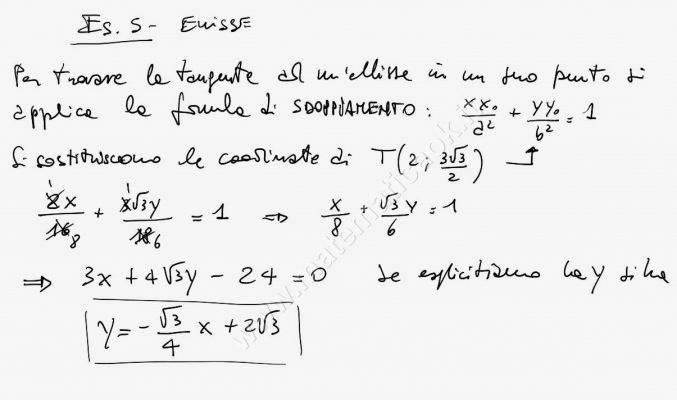 Es. 5 - Ellisse
Per trovare la tangente ad un'ellisse in un suo punto si
applica la formula di SDOPPIAMENTO: xx₀/a² + yy₀/b² = 1
Si sostituiscono le coordinate di T(2; 3√3/2)
2x/16 8 + 3√3y/18 6 = 1 ⇒ x/8 + √3y/6 = 1
⇒ 3x + 4√3y - 24 = 0 se esplicitiamo la y si ha
y = -√3/4 x + 2√3